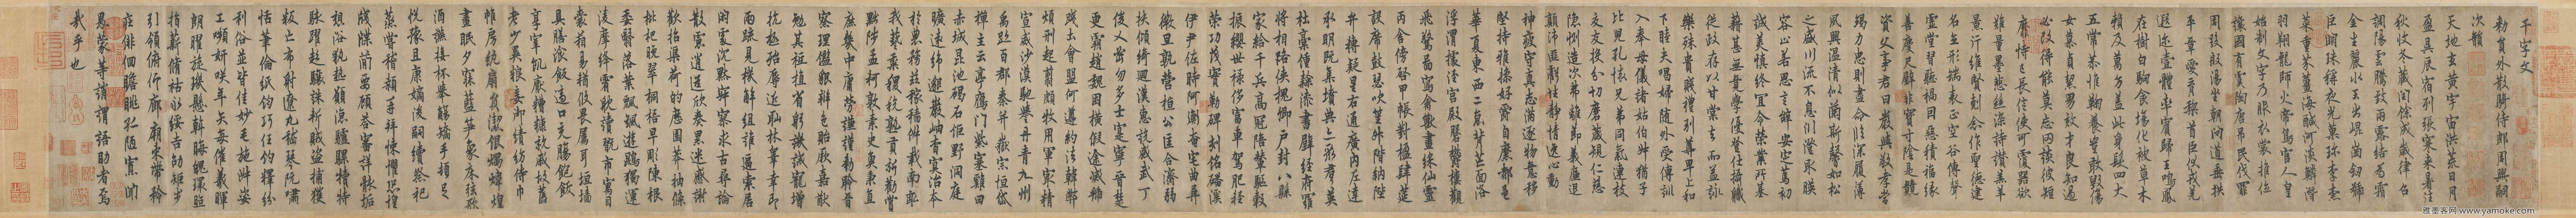 千字文
敕員外散騎侍郎周興嗣
次韻
天地玄黄宇宙洪荒日月
盈昃辰宿列張寒來暑往
秋收冬藏閏餘成歲律吕
調陽雲騰致雨露結為霜
金生麗水玉出崑崗劍號
巨闕珠稱夜光菓珍李柰
菜重芥薑海鹹河淡鱗潛
羽翔龍師火帝鳥官人皇
始制文字乃服衣裳推位
讓國有虞陶唐弔民伐罪
周發殷湯坐朝問道垂拱
平章愛育黎首臣伏戎羌
遐迩壹體率賓歸王鳴鳳
在樹白駒食場化被草木
賴及萬方盖此身髮四大
五常恭惟鞠養豈敢毀傷
女慕貞絜男效才良知過
必改得能莫忘罔談彼短
靡恃己長信使可覆器欲
難量墨悲絲染詩讚羔羊
景行維賢剋念作聖德建
名立形端表正空谷傳聲
虛堂習聽禍因惡積福緣
善慶尺璧非寶寸陰是競
資父事君曰嚴與敬孝當
竭力忠則盡命臨深履薄
夙興溫凊似蘭斯馨如松
之盛川流不息淵澄取暎
容止若思言辭安定篤初
誠美慎終宜令榮業所基
藉甚無竟學優登仕攝職
從政存以甘棠去而益詠
樂殊貴賤禮別尊卑上和
下睦夫唱婦隨外受傅訓
入奉母儀諸姑伯叔猶子
比兒孔懷兄弟同氣連枝
交友投分切磨箴規仁慈
隱惻造次弗離節義廉退
顛沛匪虧性靜情逸心動
神疲守真志滿逐物意移
堅持雅操好爵自縻都邑
華夏東西二京背芒面洛
浮渭據涇宮殿盤鬱樓觀
飛驚圖寫禽獸畫綵仙靈
丙舍傍啓甲帳對楹肆筵
設席鼓瑟吹笙升階納陛
弁轉疑星右通廣內左達
承明既集墳典亦聚群英
杜稾鍾隸漆書壁經府羅
將相路俠槐卿戶封八縣
家給千兵高冠陪輦驅轂
振纓世祿侈富車駕肥輕
策功茂實勒碑刻銘磻溪
伊尹佐時阿衡奄宅曲阜
微旦孰營桓公匡合濟弱
扶傾綺迴漢惠說感武丁
俊乂密勿多士寔寧晉楚
更霸趙魏困橫假途滅虢
踐土會盟何遵約法韓弊
煩刑起翦頗牧用軍最精
宣威沙漠馳譽丹青九州
禹跡百郡秦并嶽宗恒岱
禪主云亭鴈門紫塞雞田
赤城昆池碣石鉅野洞庭
曠遠緜邈巖岫杳冥治本
於農務茲稼穡俶載南畝
我藝黍稷稅熟貢新勸賞
黜陟孟軻敦素史魚秉直
庶幾中庸勞謙謹勅聆音
察理鑑貌辨色貽厥嘉猷
勉其祗植省躬譏誡寵增
抗極殆辱近恥林皋幸即
兩疏見機解組誰逼索居
閑處沉默寂寥求古尋論
散慮逍遥欣奏累遣慼謝
歡招渠荷的歷園莽抽條
枇杷晚翠梧桐早彫陳根
委翳落葉飄飖遊鵾獨運
凌摩絳霄耽讀翫市寓目
囊箱易輶攸畏屬耳垣墻
具膳飡飯適口充腸飽飫
享宰飢厭糟糠親戚故舊
老少異粮妾御績紡侍巾
帷房紈扇圓潔銀燭煒煌
晝眠夕寐藍筍象床絃歌
酒讌接杯舉觴矯手頓足
悅豫且康嫡後嗣續祭祀
蒸嘗稽顙再拜悚懼恐惶
牋牒簡要顧答審詳骸垢
想浴執熱願涼驢騾犢特
駭躍超驤誅斬賊盜捕獲
叛亡布射遼丸嵇琴阮嘯
恬筆倫紙鈞巧任釣釋紛
利俗並皆佳妙毛施淑姿
工嚬妍咲年矢每催羲暉
朗曜旋璣懸斡晦魄環照
指薪脩祜永綏吉劭矩步
引領俯仰廊廟束帶矜
莊徘徊瞻眺孤陋寡聞
愚蒙等誚謂語助者焉
哉乎也
雅墨客网 www.yamoke.com